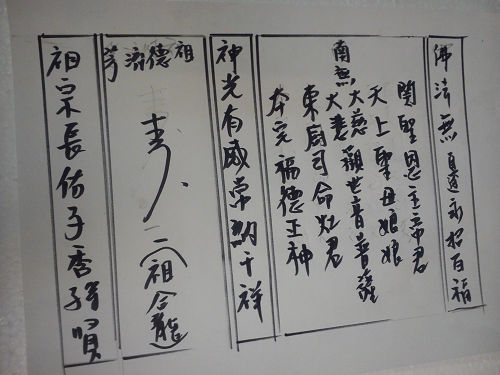 佛法無邊永招百福
關聖恩主帝君
天上聖母娘娘
南無
大慈大悲觀世音菩薩
東廚司命灶君
本宅福德正神
神光有威常納千祥
祖德流芳
二祖合
祖宗長佑子秀孫賢